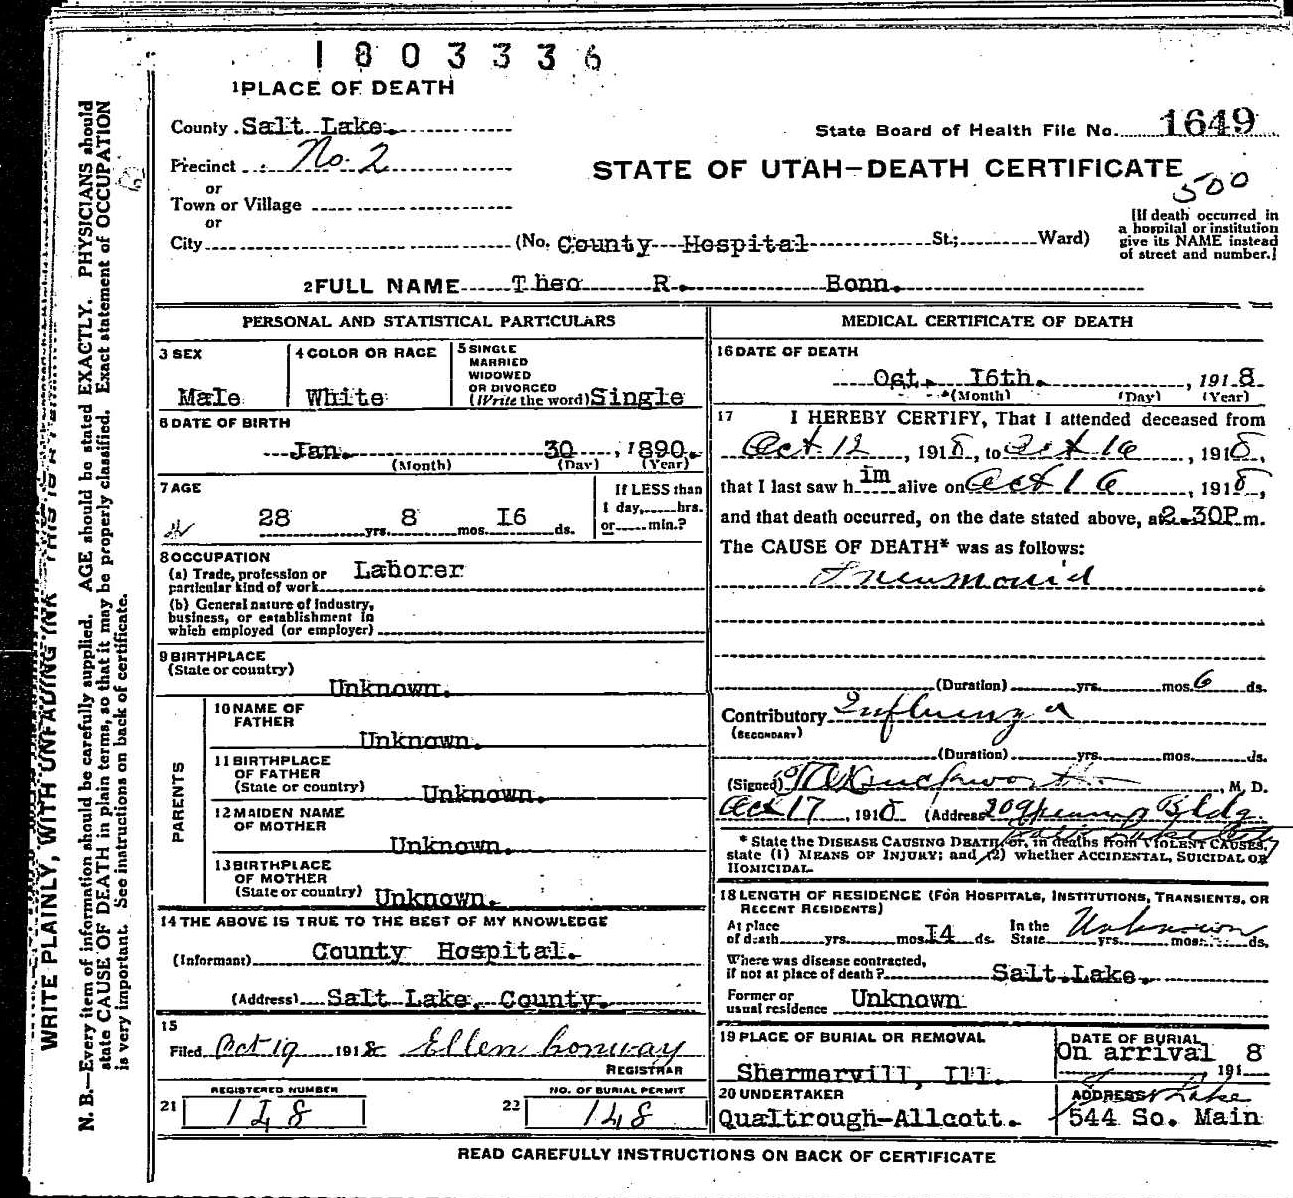 1803336
1 PLACE OF DEATH
County Salt Lake.
State Board of Health File No. 1649
Precinct No. 2
STATE OF UTAH—DEATH CERTIFICATE
500
or
Town or Village
or
City (No. County Hospital St.; Ward)
[If death occurred in
a hospital or institution
give its NAME instead
of street and number.]
2 FULL NAME Theo R. Bonn.
PERSONAL AND STATISTICAL PARTICULARS
3 SEX
Male
4 COLOR OR RACE
White
5 SINGLE
MARRIED
WIDOWED
OR DIVORCED
(Write the word) Single
6 DATE OF BIRTH
Jan. 30, 1890.
(Month) (Day) (Year)
7 AGE
28 yrs. 8 mos. I6 ds.
If LESS than
1 day, hrs.
or min.?
8 OCCUPATION
(a) Trade, profession or
particular kind of work Laborer
(b) General nature of industry,
business, or establishment in
which employed (or employer)
9 BIRTHPLACE
(State or country)
Unknown.
PARENTS
10 NAME OF
FATHER
Unknown.
11 BIRTHPLACE
OF FATHER
(State or country) Unknown.
12 MAIDEN NAME
OF MOTHER
Unknown.
13 BIRTHPLACE
OF MOTHER
(State or country) Unknown.
14 THE ABOVE IS TRUE TO THE BEST OF MY KNOWLEDGE
(Informant) County Hospital.
(Address) Salt Lake, County.
15
Filed Oct 19 1918 Ellen Conway
REGISTRAR
REGISTERED NUMBER
21 148
NO. OF BURIAL PERMIT
22 148
MEDICAL CERTIFICATE OF DEATH
16 DATE OF DEATH
Oct. I6th. , 1918
(Month) (Day) (Year)
17 I HEREBY CERTIFY, That I attended deceased from
Oct. 12, 1918, to Oct 16, 1918,
that I last saw him alive on Oct 16, 1918,
and that death occurred, on the date stated above, at 2.30P.m.
The CAUSE OF DEATH* was as follows:
Pneumonia
(Duration) yrs. mos. 6 ds.
Contributory Influenza
(SECONDARY)
(Duration) yrs. mos. ds.
(Signed) M. D.
Oct 17, 1918 (Address Bldg.
Salt Lake City
* State the DISEASE CAUSING DEATH, or, in deaths from VIOLENT CAUSES,
state (1) MEANS OF INJURY; and (2) whether ACCIDENTAL, SUICIDAL OR
HOMICIDAL.
18 LENGTH OF RESIDENCE (FOR HOSPITALS, INSTITUTIONS, TRANSIENTS, OR
RECENT RESIDENTS)
At place
of death yrs. mos. I4 ds.
In the
State Unknown yrs. mos. ds.
Where was disease contracted,
if not at place of death? Salt Lake.
Former or
usual residence Unknown
19 PLACE OF BURIAL OR REMOVAL
Shermervill, Ill.
DATE OF BURIAL
On arrival 8
191
20 UNDERTAKER
Qualtrough-Allcott.
ADDRESS
Lake
544 So. Main
READ CAREFULLY INSTRUCTIONS ON BACK OF CERTIFICATE
N. B.—Every item of information should be carefully supplied. AGE should be stated EXACTLY. PHYSICIANS should
state CAUSE OF DEATH in plain terms, so that it may be properly classified. Exact statement of OCCUPATION
is very important. See instructions on back of certificate.
WRITE PLAINLY, WITH UNFADING INK